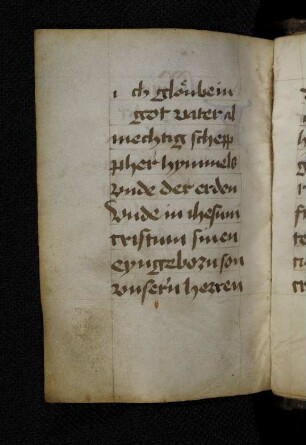 i ch glöube in
got vater al
mechtig schepp
pher hymmels
vnde der erden
Vnde in ihesum
cristum sinen
eyngeborn son
vnsern herren